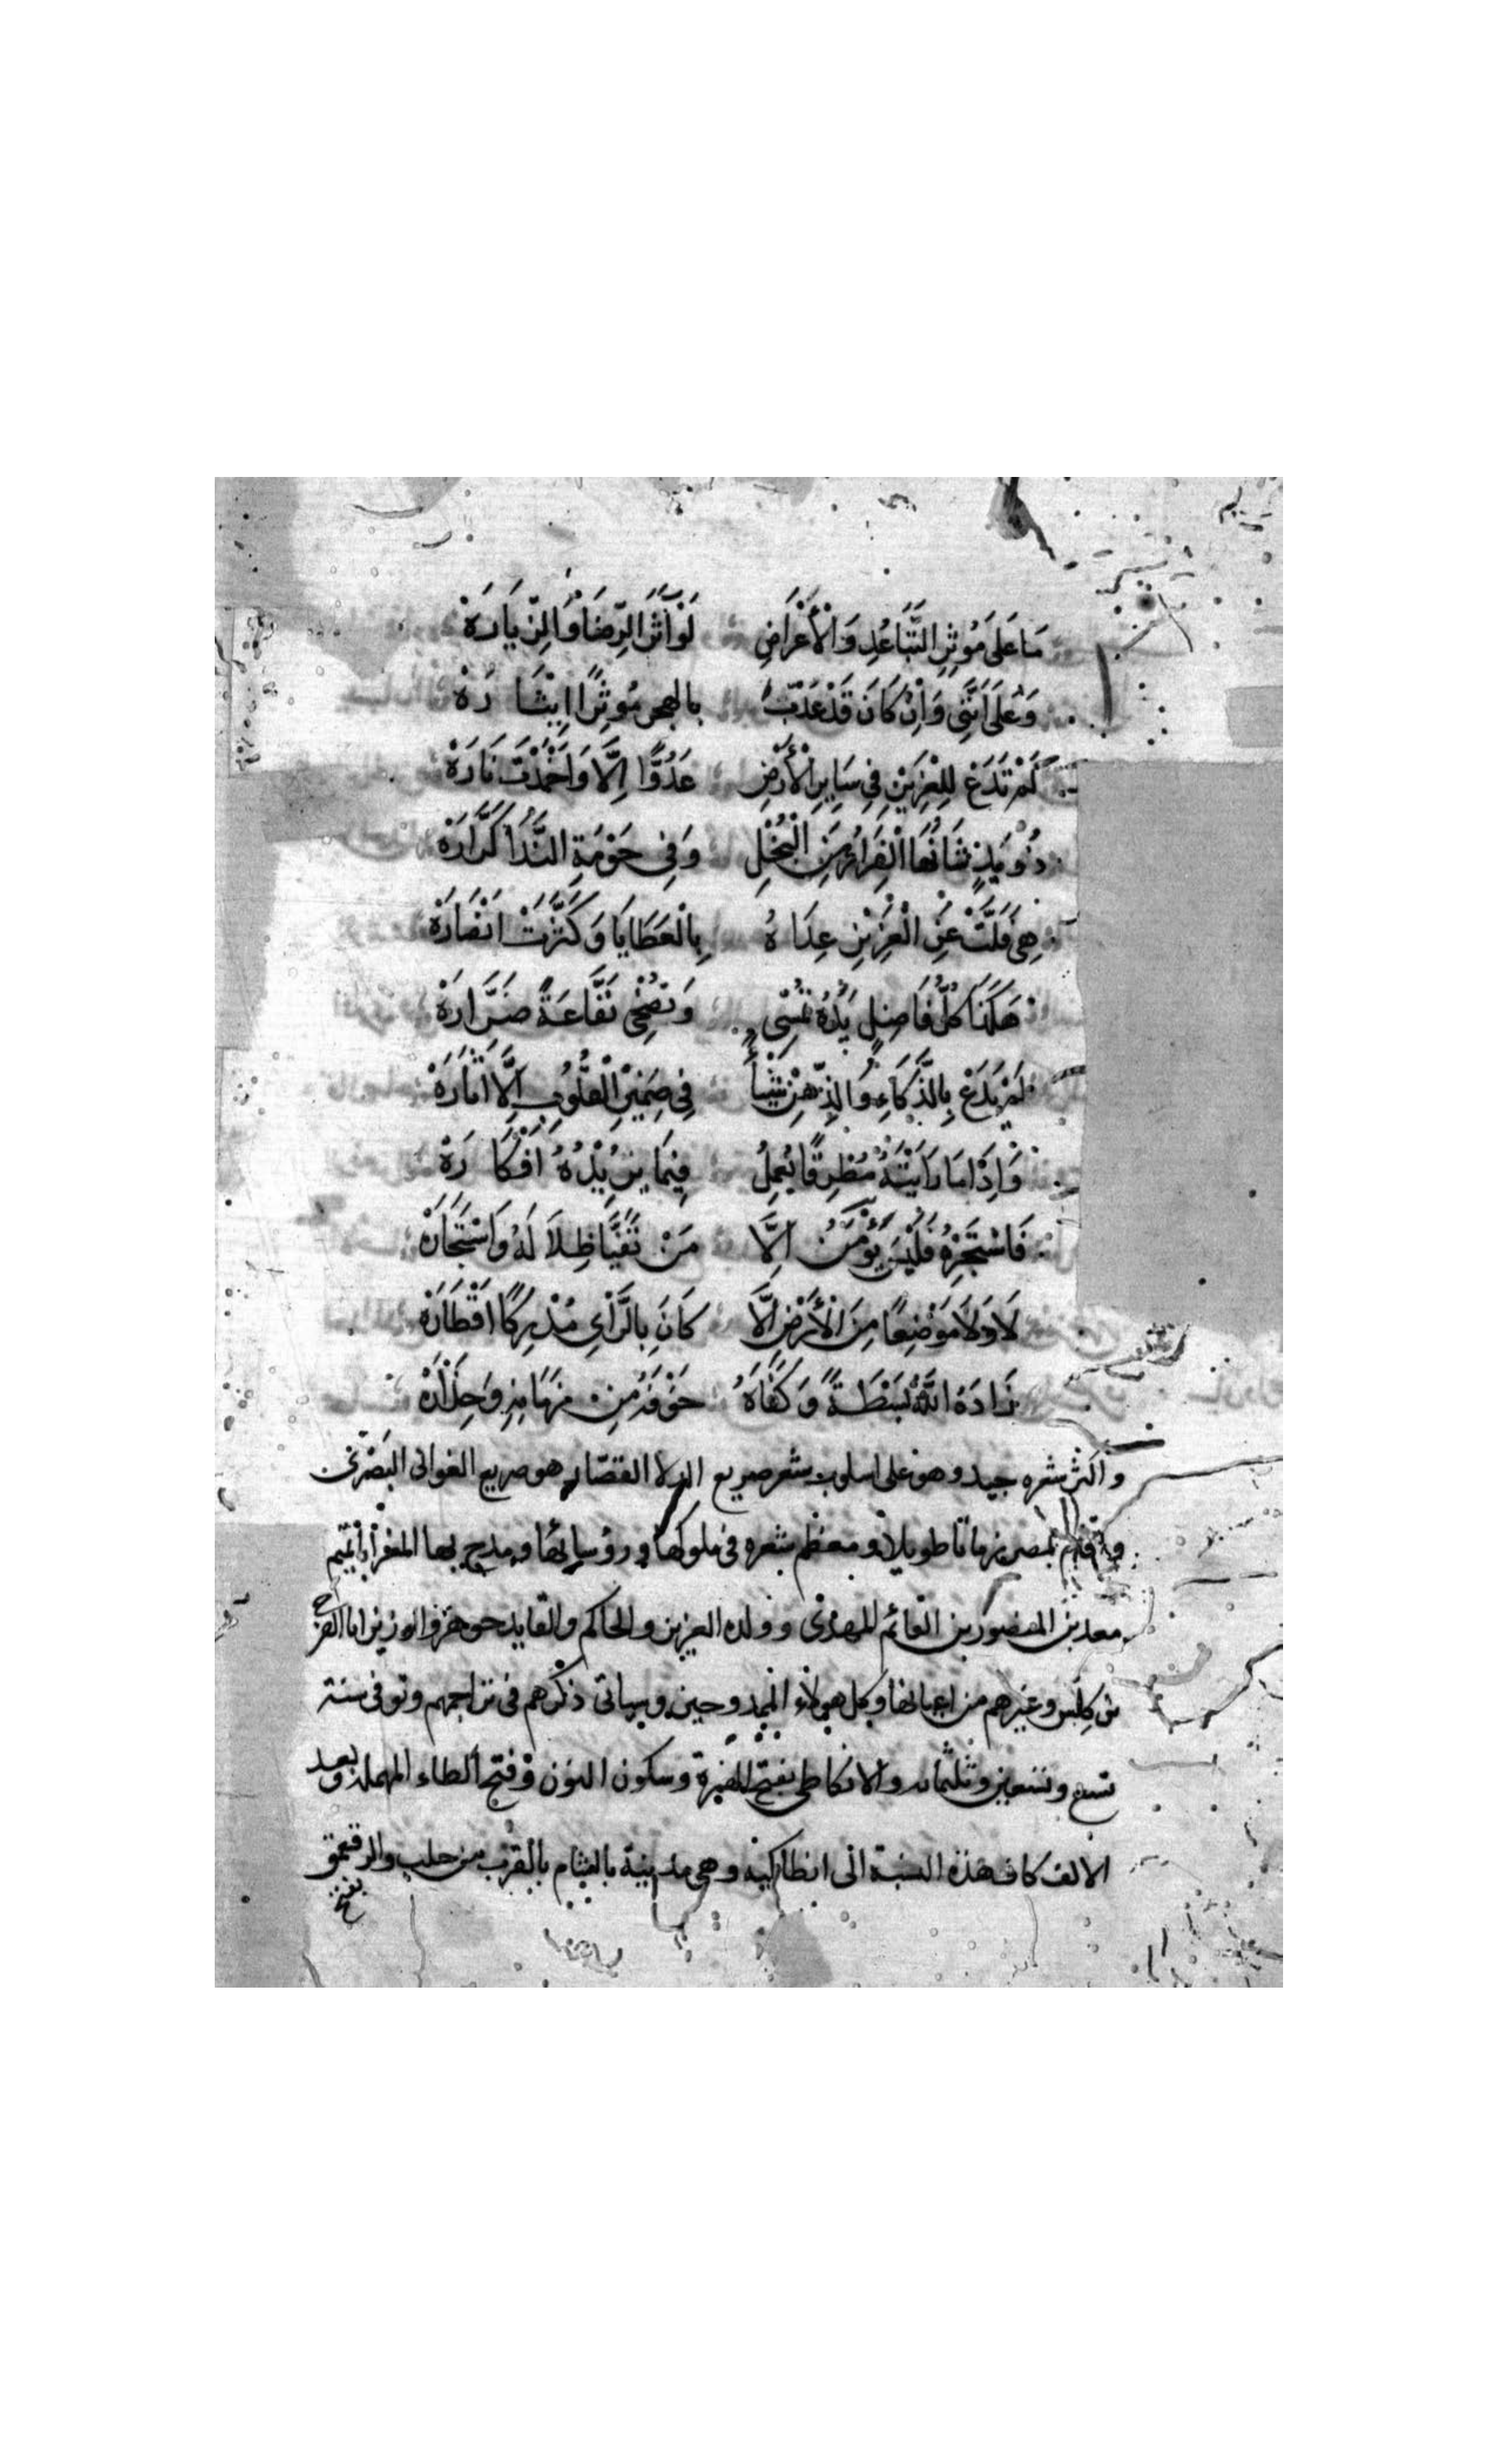 مَا عَلَى مُؤثِرِ التَّبَاعُدِ وَالْأَعْرَاضِ لَوْ آثَرَ الرِّضَا وَالزِّيَارَهْ
وَعَلَى أَنَّنِي وَإِنْ كَانَ قَدْ عَذَّبَ بالهجر مُوثِرًا إِيْثَارَهْ
لَمْ تَدَعْ لِلْعَزِيْزِ فِي سَايِرِ الْأَرْضِ عَدُوًّا اِلَّا وَاَخْمَدَتْ نَارَهْ
ذُو يَدٍ شَانُهَا الْفِرَارُ مِنَ الْبُخْلِ وَفِي حَوْمَةِ النَّدَا كَرَّارَهْ
هِيَ فَلَّتْ عَنِ الْعَزِيْزِ عِدَاهُ بِالْعَطَايَا وَكَثَّرَتْ اَنْصَارَهْ
هَكَذَا كُلُّ فَاضِلٍ يَدُهُ تُمْسِى وَتُضْحِى نَفَّاعَةً ضَرَّارَهْ
لَمْ يَدَعْ بِالذَّكَاءِ وَالذِّهْنِ شَيْئاً فِي ضَمِيْرِ الْقُلُوبِ اِلَّا اَثَارَهْ
وَاِذَا مَا رَاَيْتَهُ مُطْرِقًا يُعْمِلُ فِيْمَا يُرِيْدُهُ اَفْكَارَهْ
فَاسْتَجِرْهُ فَلَيْسَ يُؤْمَنُ اِلَّا مَنْ تَفَيَّا ظِلَالَهُ وَاسْتَجَارَهْ
لَا وَلَا مَوْضِعًا مِنَ الْأَرْضِ اِلَّا كَانَ بِالرَّاْيِ مُدْرِكًا اَقْطَارَهْ
زَادَهُ اللَّهُ بَسْطَةً وَكَفَاهُ خَوْفَهُ مِنْ زَمَانِهِ وَحِذَارَهْ
واكثر شعره جيد وهو على اسلوب شعر صريع الدلا القصّار هو صريع الغوانى البَصْرَىّ
واقام بمصر زمانا طويلا ومعظم شعره فى ملوكها ورؤسائها ومدح بها المعز أبا تميم
معد بن المنصور بن القائم المهدى وولده العزيز والحاكم والقايد جوهر والوزير ابا الفرج
بن كِلّس وغيرهم من اعيانها وكل هولاء الممدوحين وسياتى ذكرهم فى تراجمهم وتوفى سنة
تسع وتسعين وثلثمائه والانطاكى بفتح الهمزة وسكون النون وفتح الطاء المهمله وبعد
الالف كاف هذه النسبة الى انطاكية وهى مدينة بالشام بالقرب من حلب والرقعمق
بفتح